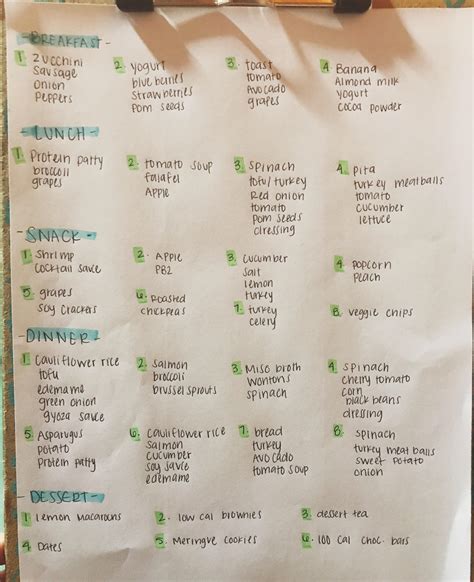 - BREAKFAST -
1 Zucchini
Sausage
Onion
Peppers
2. yogurt
blueberries
Strawberries
Pom seeds
3. toast
tomato
Avocado
grapes
4. Banana
Almond milk
yogurt
cocoa powder
- LUNCH -
1. Protein patty
broccoli
grapes
2. tomato soup
falafel
Apple
3. Spinach
tofu/turkey
Red onion
tomato
Pom seeds
dressing
4. pita
turkey meatballs
tomato
cucumber
lettuce
- SNACK -
1. Shrimp
cocktail sauce
2. Apple
PB2
3. cucumber
salt
lemon
turkey
4. popcorn
peach
5. grapes
soy crackers
6. Roasted
chickpeas
7. turkey
celery
8. veggie chips
- DINNER -
1 Cauliflower rice
tofu
edemame
green onion
gyoza sauce
2. Salmon
broccoli
brussel sprouts
3. Miso broth
wontons
spinach
4. Spinach
cherry tomato
corn
black beans
dressing
5 Asparugus
potato
Protein patty
6. Cauliflower rice
Salmon
cucumber
soy sauce
edemame
7. bread
turkey
Avocado
tomato soup
8. spinach
turkey meat balls
sweet potato
onion
- DESSERT -
1 lemon macaroons
2. low cal brownies
3. dessert tea
4 Dates
5. Meringue cookies
6. 100 cal choc. bars